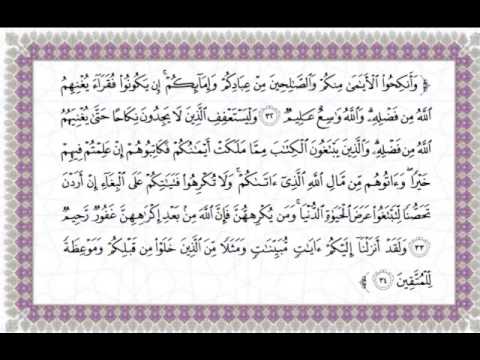 ﴿ وَأَنكِحُوا۟ ٱلْأَيَـٰمَىٰ مِنكُمْ وَٱلصَّـٰلِحِينَ مِنْ عِبَادِكُمْ وَإِمَآئِكُمْ ۚ إِن يَكُونُوا۟ فُقَرَآءَ يُغْنِهِمُ
ٱللَّهُ مِن فَضْلِهِۦ ۗ وَٱللَّهُ وَٰسِعٌ عَلِيمٌ ﴿٣٢﴾ وَلْيَسْتَعْفِفِ ٱلَّذِينَ لَا يَجِدُونَ نِكَاحًا حَتَّىٰ يُغْنِيَهُمُ
ٱللَّهُ مِن فَضْلِهِۦ ۗ وَٱلَّذِينَ يَبْتَغُونَ ٱلْكِتَـٰبَ مِمَّا مَلَكَتْ أَيْمَـٰنُكُمْ فَكَاتِبُوهُمْ إِنْ عَلِمْتُمْ فِيهِمْ
خَيْرًا ۖ وَءَاتُوهُم مِّن مَّالِ ٱللَّهِ ٱلَّذِىٓ ءَاتَىٰكُمْ ۚ وَلَا تُكْرِهُوا۟ فَتَيَـٰتِكُمْ عَلَى ٱلْبِغَآءِ إِنْ أَرَدْنَ
تَحَصُّنًا لِّتَبْتَغُوا۟ عَرَضَ ٱلْحَيَوٰةِ ٱلدُّنْيَا ۚ وَمَن يُكْرِههُّنَّ فَإِنَّ ٱللَّهَ مِنۢ بَعْدِ إِكْرَٰهِهِنَّ غَفُورٌ رَّحِيمٌ
﴿٣٣﴾ وَلَقَدْ أَنزَلْنَآ إِلَيْكُمْ ءَايَـٰتٍ مُّبَيِّنَـٰتٍ وَمَثَلًا مِّنَ ٱلَّذِينَ خَلَوْا۟ مِن قَبْلِكُمْ وَمَوْعِظَةً
لِّلْمُتَّقِينَ ﴿٣٤﴾ ﴾